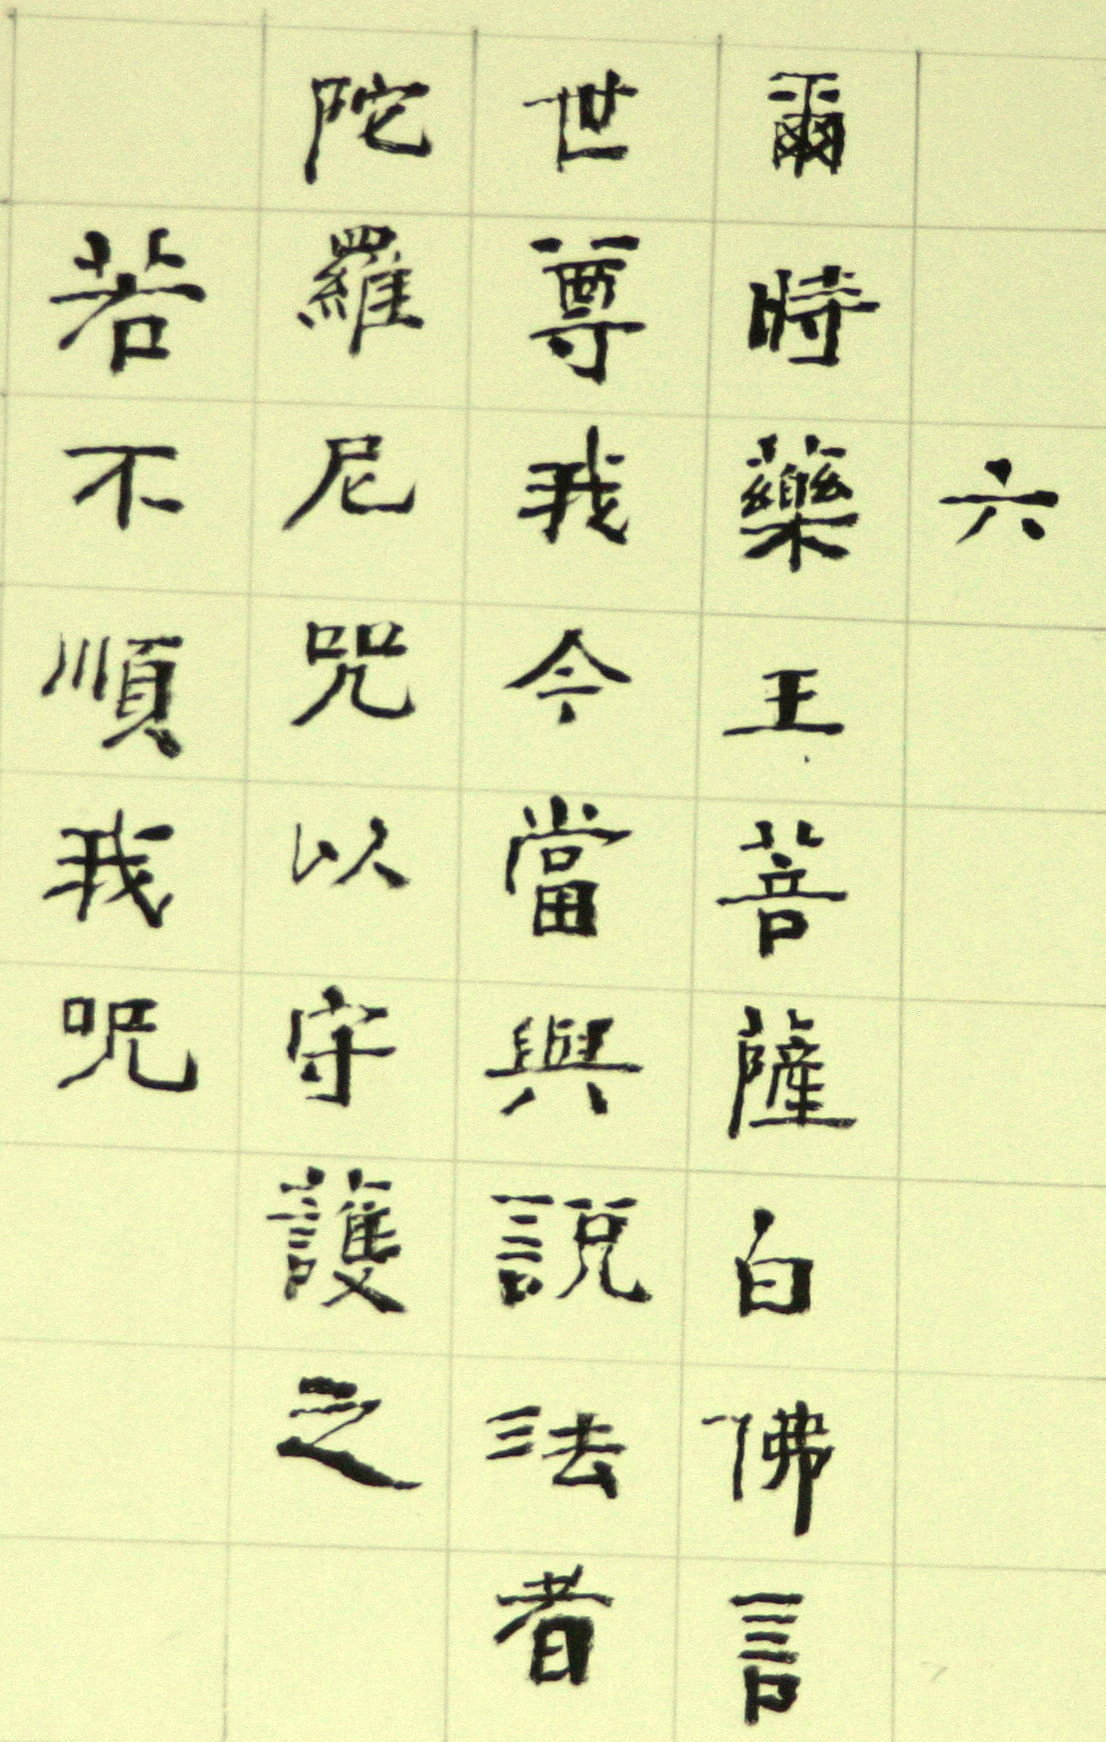 六
爾時藥王菩薩白佛言
世尊我今當與説法者
陀羅尼咒以守護之
若不順我呪